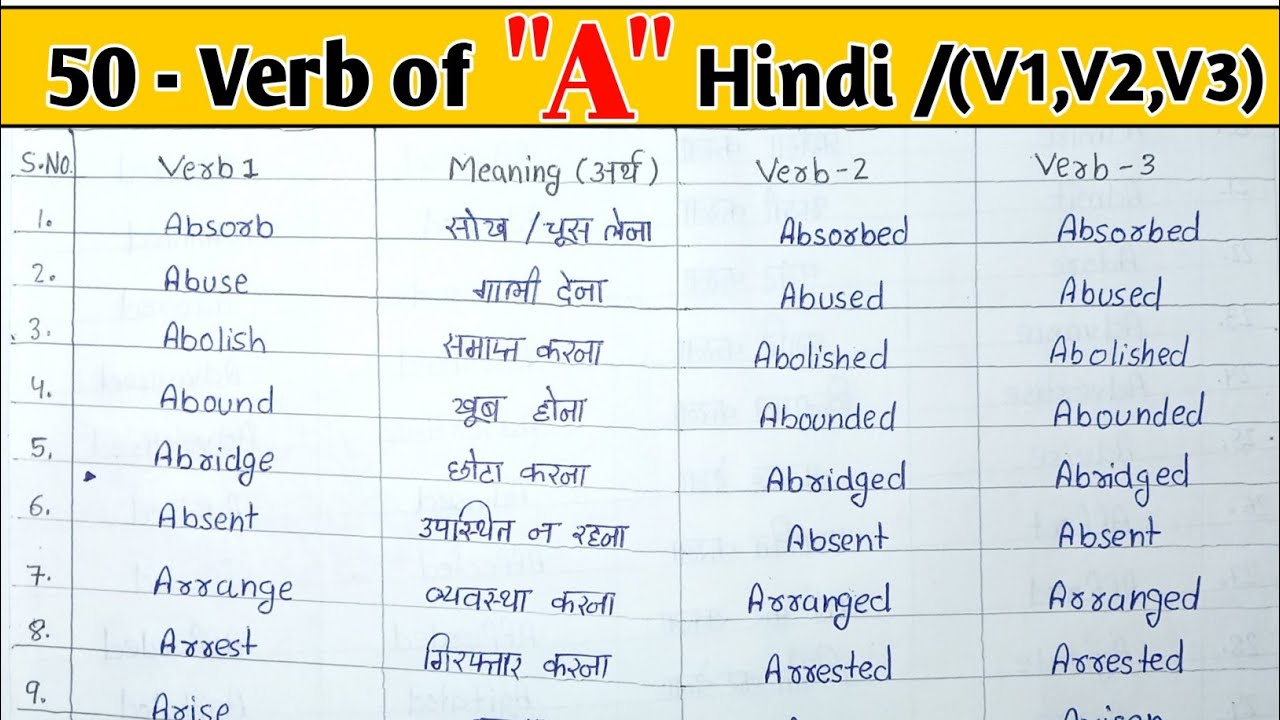 50 - Verb of "A" Hindi /(V1,V2,V3)
S.No. Verb 1 Meaning (अर्थ) Verb-2 Verb-3
1. Absorb सोख / चूस लेना Absorbed Absorbed
2. Abuse गाली देना Abused Abused
3. Abolish समाप्त करना Abolished Abolished
4. Abound खूब होना Abounded Abounded
5. Abridge छोटा करना Abridged Abridged
6. Absent उपस्थित न रहना Absent Absent
7. Arrange व्यवस्था करना Arranged Arranged
8. Arrest गिरफ्तार करना Arrested Arrested
9. Arise